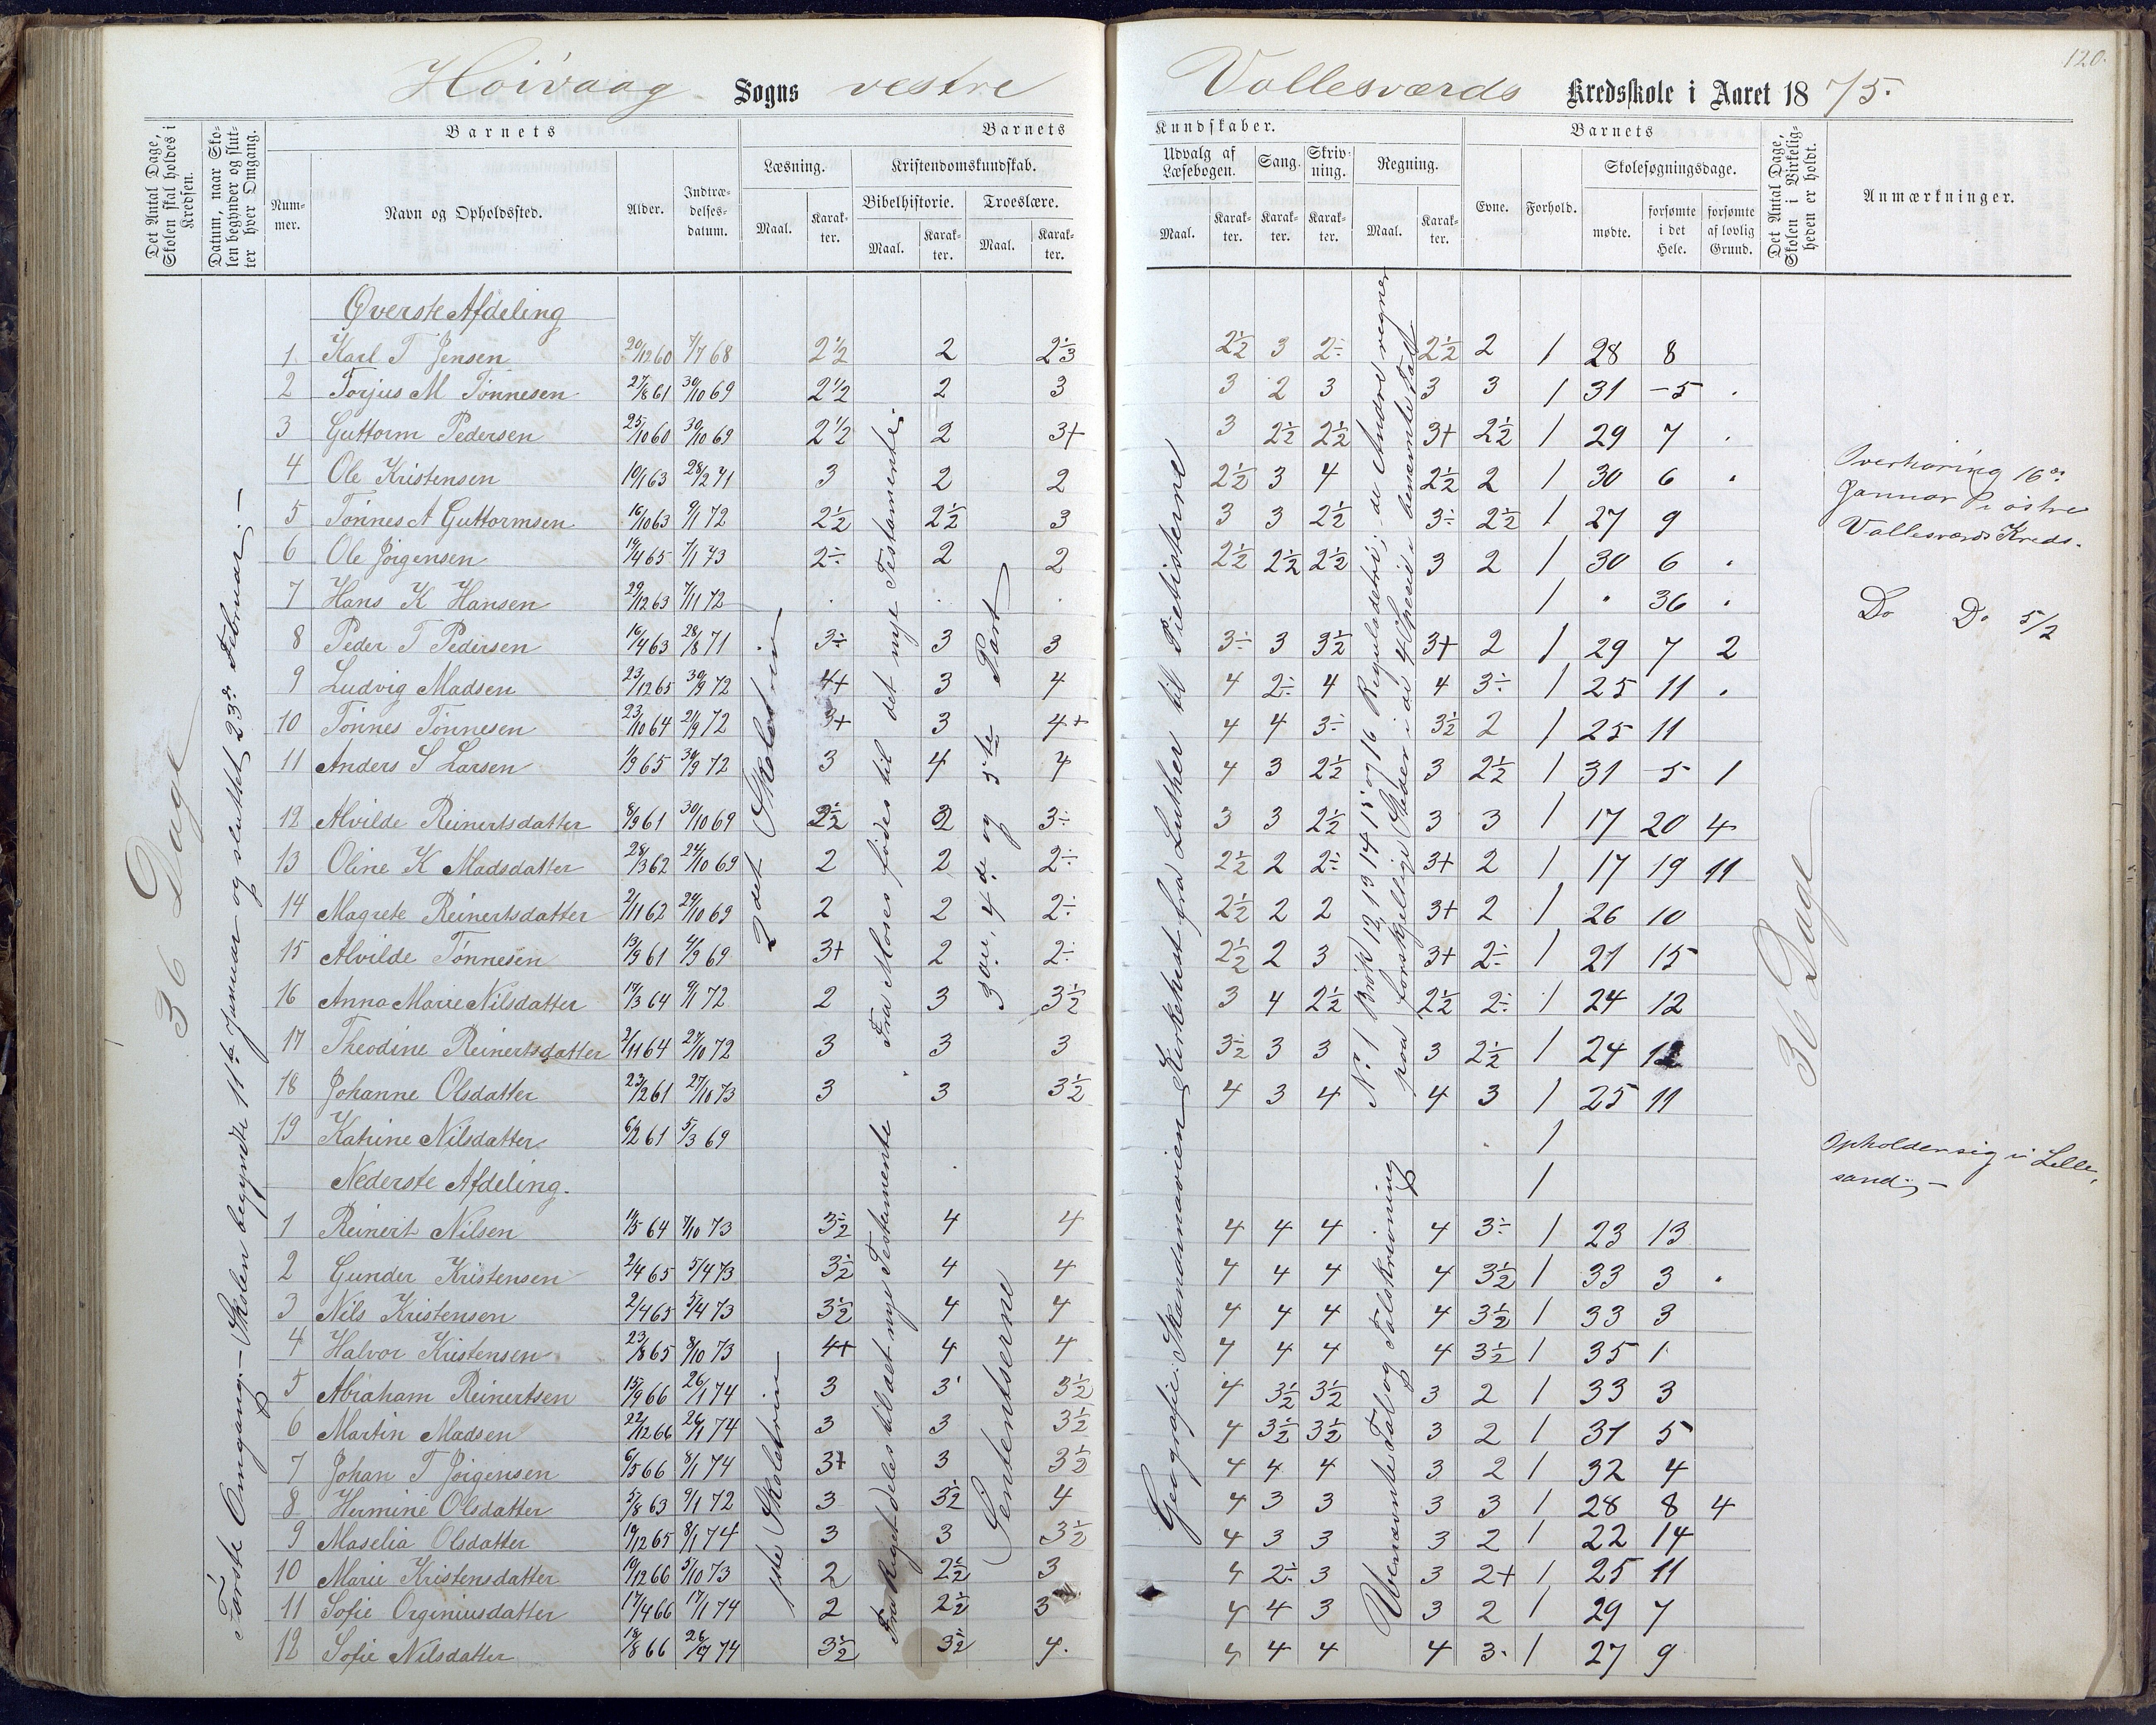 120.
Hoivaag Sogns vestre Vallesværds Kredsskole i Aaret 1875.
Det Antal Dage, Skolen skal holdes i Kredsen.
Datum, naar Skolen begynder og slutter hver Omgang.
Barnets
Nummer.
Navn og Opholdssted.
Alder.
Indtrædelsesdatum.
Barnets Kundskaber.
Læsning.
Maal. Karakter.
Kristendomskundskab.
Bibelhistorie. Troeslære.
Maal. Karakter. Maal. Karakter.
Udvalg af Læsebogen. Sang. Skrivning. Regning.
Maal. Karakter. Karakter. Karakter. Maal. Karakter.
Barnets
Evne. Forhold. Skolesøgningsdage.
mødte. forsømte i det Hele. forsømte af lovlig Grund.
Det Antal Dage, Skolen i Virkeligheden er holdt.
Anmærkninger.
36 Dage
Første Omgang.- Skolen begyndte 11te Januar og sluttet 23de Februar.-
Øverste Afdeling
1 Karl T Jensen 20/12 60 7/7 68 2½ 2 2⅓ 2½ 3 2÷ 2½ 2 1 28 8
2 Torjus M Tønnesen 27/8 61 30/10 69 2½ 2 3 3 2 3 3 3 1 31 5 .
3 Guttorm Pedersen 25/10 60 30/10 69 2½ 2 3+ 3 2½ 2½ 3+ 2½ 1 29 7 .
4 Ole Kristensen 10/1 63 28/2 71 3 2 2 2½ 3 4 2½ 2 1 30 6 .
5 Tønnes A Guttormsen 16/10 63 9/1 72 2½ 2½ 3 3 3 2½ 3÷ 2½ 1 27 9
6 Ole Jørgensen 19/4 65 7/1 73 2÷ 2 2 2½ 2½ 2½ 3 2 1 30 6 .
7 Hans K Hansen 29/12 63 7/11 72 . . . 1 " 36 .
8 Peder T Pedersen 16/4 63 28/8 71 3÷ 3 3 3÷ 3 3½ 3+ 2 1 29 7 2
9 Ludvig Madsen 23/12 65 30/9 72 4+ 3 4 4 2÷ 4 4 3÷ 1 25 11 .
10 Tønnes Tønnesen 23/10 64 21/9 72 3+ 3 4+ 4 4 3÷ 3½ 2 1 25 11
11 Anders S Larsen 1/9 65 30/9 72 3 4 4 4 3 2½ 3 2½ 1 31 5 1
12 Alvilde Reinertsdatter 8/9 61 30/10 69 2½ 2 3÷ 3 3 2½ 3 3 1 17 20 4
13 Oline K Madsdatter 28/3 62 24/10 69 2 2 2÷ 2½ 2 2÷ 3+ 2 1 17 19 11
14 Magrete Reinertsdatter 2/11 62 24/10 69 2 2 2÷ 2½ 2 2 3+ 2 1 26 10
15 Alvilde Tønnesen 13/9 61 4/9 69 3+ 2 2÷ 2½ 2 3 3+ 2÷ 1 21 15
16 Anna Marie Nilsdatter 19/3 64 9/1 72 2 3 3½ 3 4 2½ 2½ 2÷ 1 24 12
17 Theodine Reinertsdatter 2/11 64 27/10 72 3 3 3 3½ 3 3 3 2½ 1 24 12
18 Johanne Olsdatter 23/2 61 27/10 73 3 3 3½ 4 3 4 4 3 1 25 11
19 Katrine Nilsdatter 6/2 61 5/3 69 1
Nederste Afdeling. 1
1 Reinert Nilsen 19/5 64 7/10 73 3½ 4 4 4 4 4 4 3÷ 1 23 13
2 Gunder Kristensen 2/4 65 5/4 73 3½ 4 4 4 4 4 4 3½ 1 33 3 .
3 Nils Kristensen 2/4 65 5/4 73 3½ 4 4 4 4 4 4 3½ 1 33 3
4 Halvor Kristensen 23/8 65 8/10 73 4+ 4 4 4 4 4 4 3½ 1 35 1
5 Abraham Reinertsen 15/9 66 26/1 74 3 3 3½ 4 3½ 3½ 3 2 1 33 3
6 Martin Madsen 22/12 66 26/1 74 3 3 3½ 4 3½ 3½ 3 2 1 31 5
7 Johan T Jørgensen 6/5 66 8/1 74 3+ 3 3½ 4 4 4 3 2 1 32 4
8 Hermine Olsdatter 5/8 63 9/1 72 3 3½ 4 4 3 3 3 3 1 28 8 4
9 Maselia Olsdatter 19/12 65 8/1 74 3 3 3½ 4 3 3 3 2 1 22 14
10 Marie Kristensdatter 19/12 66 5/10 73 2 2½ 3 4 2÷ 3 3 2+ 1 25 11
11 Sofie Orgeniusdatter 17/4 66 17/1 74 2 2½ 3 4 4 3 3 2 1 29 7
12 Sofie Nilsdatter 18/8 66 74 3½ 3½ 4. 4 4 4 4 3. 1 27 9
2det Skoletrin
1ste Skoletrin
Fra Moses fødes til det nye Testamente.
Fra Riget deles til det nye Testamente
3die, 4de og 5te Part
Sententserne
Geografi: Skandinavien Kirkehist fra Luther til Pietisterne
No 1 Brøk 12 13 14 15 og 16 Reguladetri; de Andre regner
paa forskjellige Steder i de 4 Specie i benævnte Tal
Ubenævnte Tal og Talskrivning
36 Dage
Overhøring 16de
Januar i østre
Vallesværds Kreds.
Do Do 5/2
Opholder sig i Lille-
sand.-